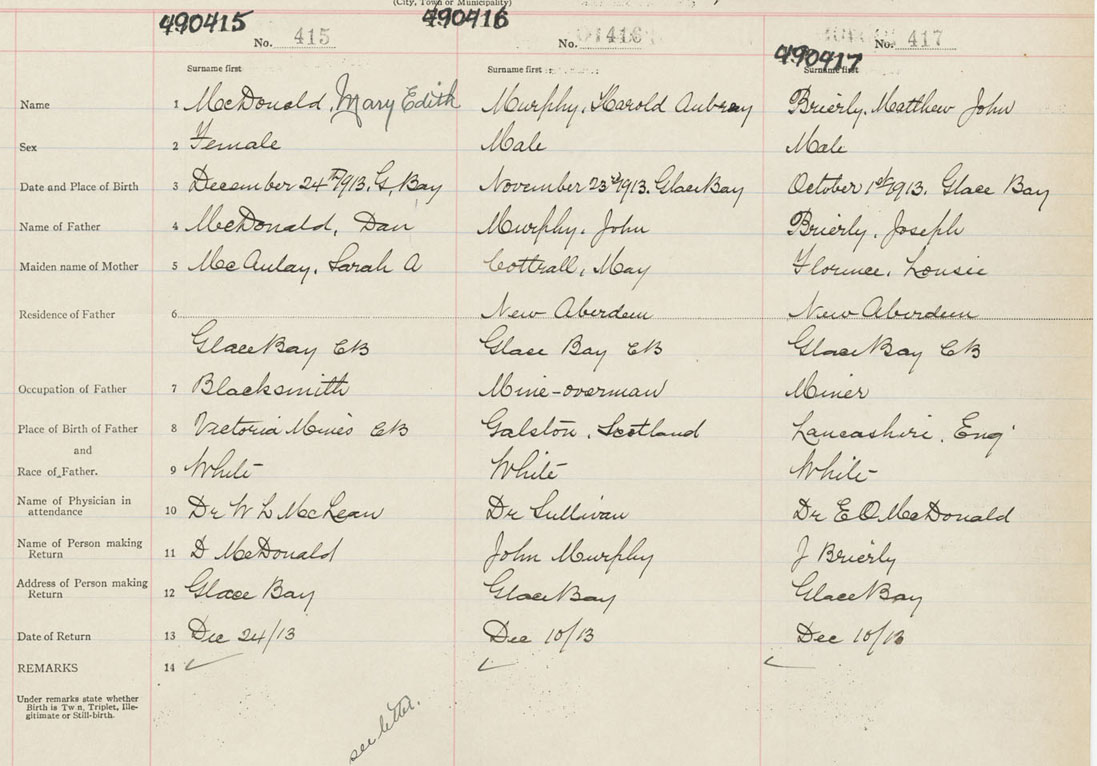 (City, Town or Municipality)
490415 490416
No. 415 No. 1416 No. 417
490417
Surname first Surname first Surname first
Name 1 McDonald, Mary Edith Murphy, Harold Aubrey Brierly, Matthew John
Sex 2 Female Male Male
Date and Place of Birth 3 December 24th 1913. G. Bay November 23rd 1913. Glace Bay October 1st 1913. Glace Bay
Name of Father 4 McDonald, Dan Murphy, John Brierly, Joseph
Maiden name of Mother 5 McAulay, Sarah A Cottrall, May Florence, Lousie
Residence of Father 6 New Aberdeen New Aberdeen
Glace Bay CB Glace Bay CB Glace Bay CB
Occupation of Father 7 Blacksmith Mine-overman Miner
Place of Birth of Father 8 Victoria Mines CB Galston, Scotland Lancashire, Eng
and
Race of Father. 9 White White White
Name of Physician in attendance 10 Dr W L McLean Dr Sullivan Dr E O McDonald
Name of Person making Return 11 D McDonald John Murphy J Brierly
Address of Person making Return 12 Glace Bay Glace Bay Glace Bay
Date of Return 13 Dec 24/13 Dec 10/13 Dec 10/13
REMARKS 14
Under remarks state whether
Birth is Tw n, Triplet, Ille-
gitimate or Still-birth.
see letter.